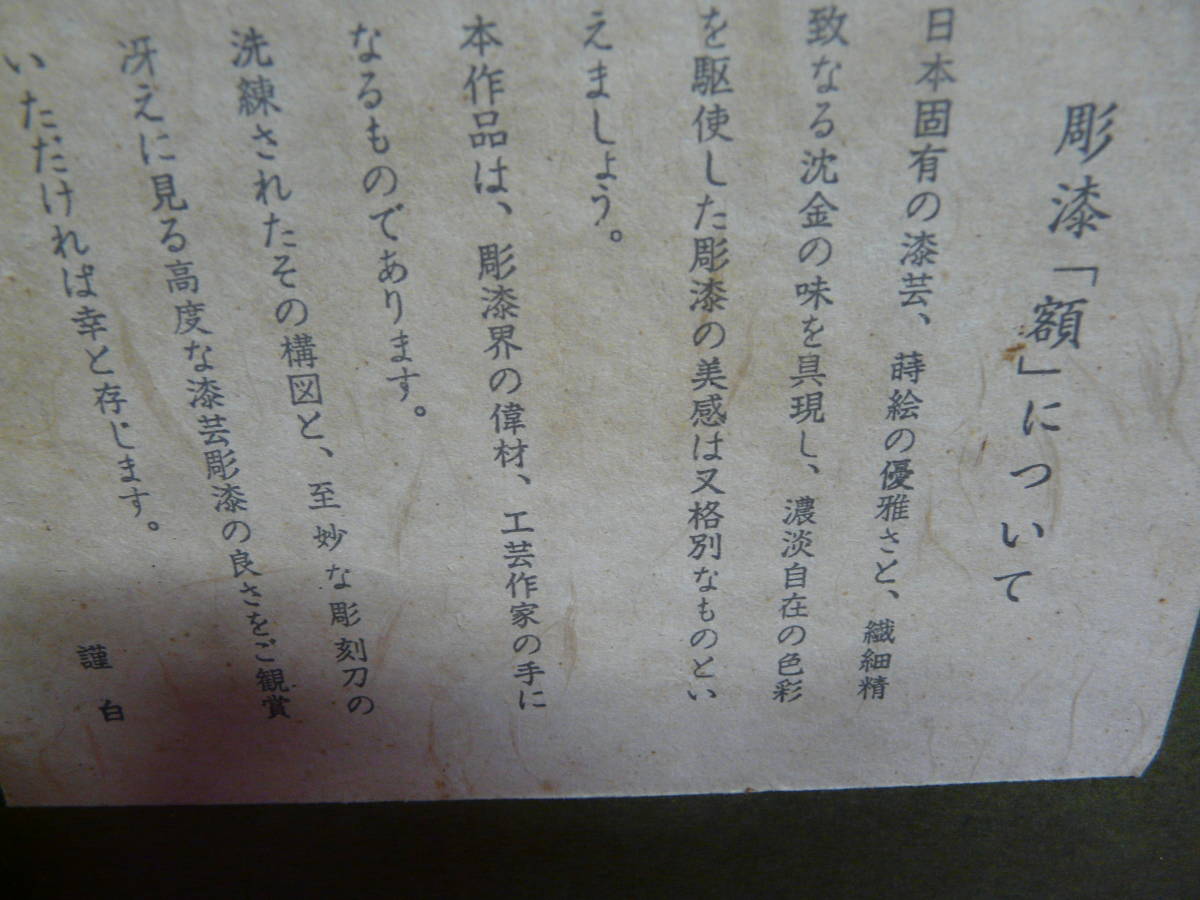 彫漆「額」について
日本固有の漆芸、蒔絵の優雅さと、繊細精
致なる沈金の味を具現し、濃淡自在の色彩
を駆使した彫漆の美感は又格別なものとい
えましょう。
本作品は、彫漆界の偉材、工芸作家の手に
なるものであります。
洗練されたその構図と、至妙な彫刻刀の
冴えに見る高度な漆芸彫漆の良さをご観賞
いただければ幸と存じます。
謹白